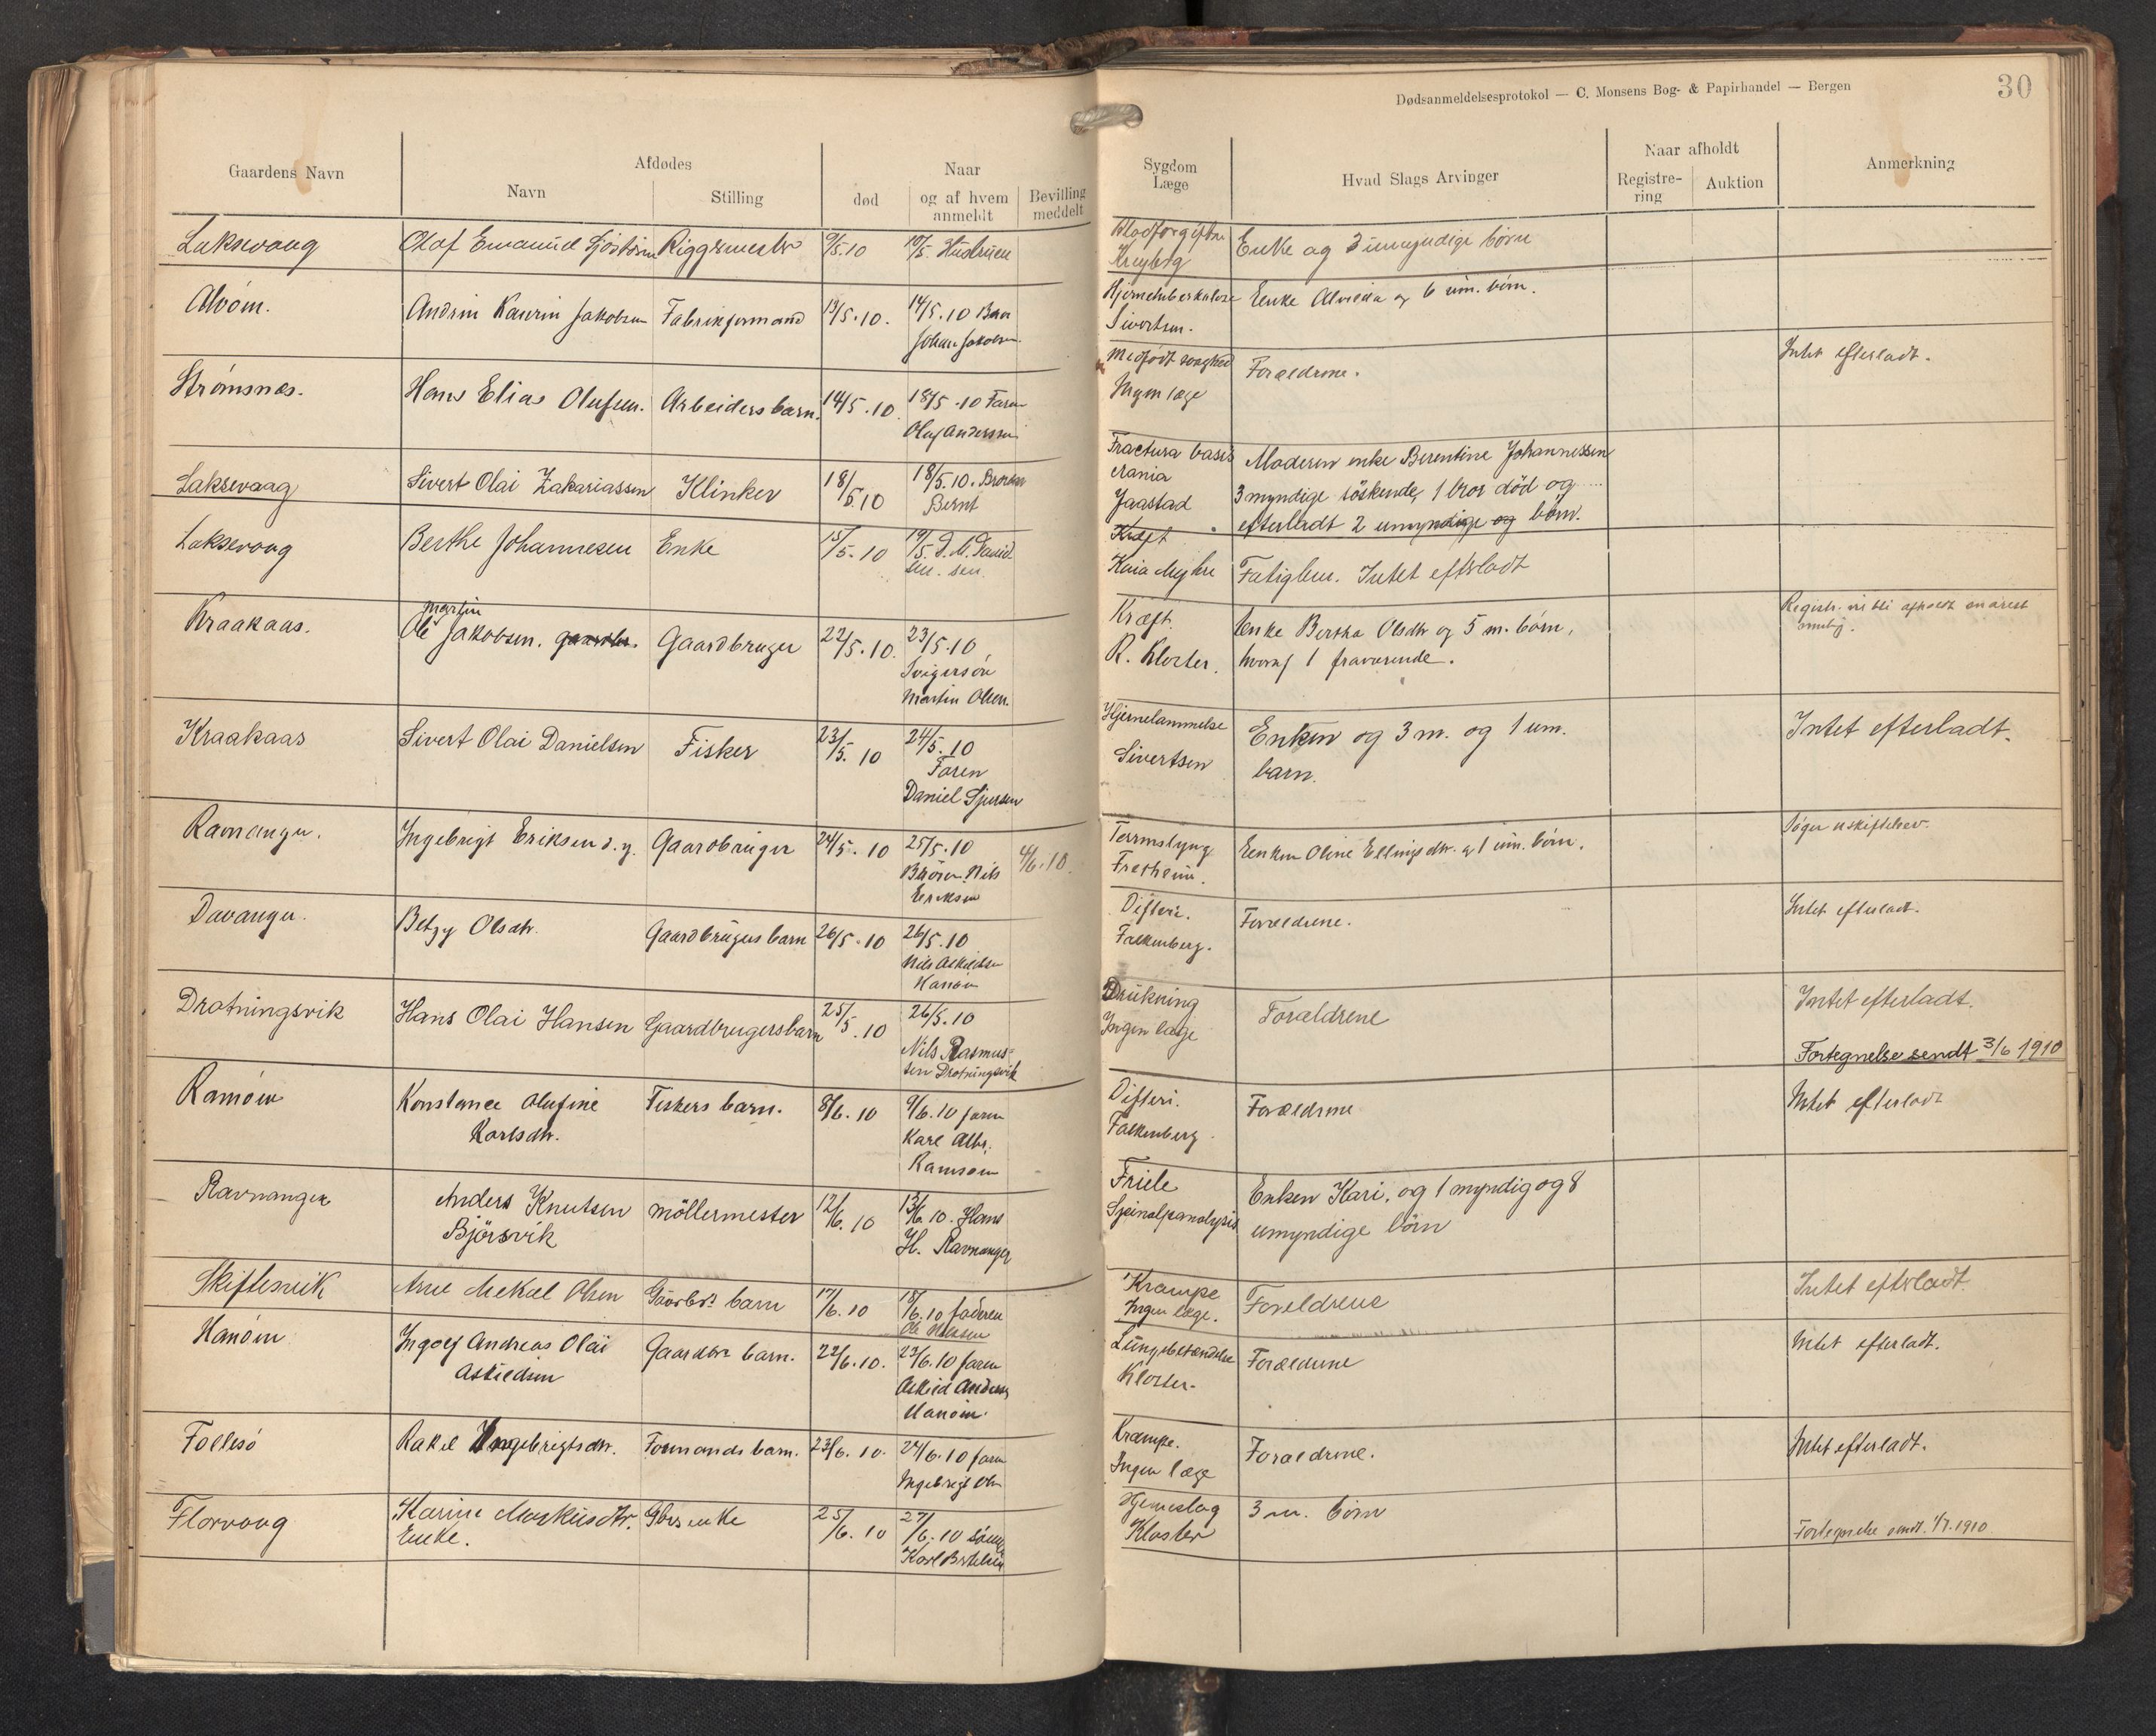 Dødsanmeldelsesprotokol — C. Monsens Bog- & Papirhandel — Bergen
30
Gaardens Navn
Afdødes
Navn
Stilling
Naar
død
og af hvem
anmeldt
Bevilling
meddelt
Sygdom
Læge
Hvad Slags Arvinger
Naar afholdt
Registre-
ring
Auktion
Anmerkning
Laksevaag
Olaf Emanuel
Riggermester
9/5.10
10/5. Hustruen
Blodforgiftn
Enke og 3 umyndige børn
Alvøen.
Andrin Kaurin Jakobsen
Fabrikformand
13/5.10.
14/5.10
Johan Jakobsen
Hjernetuberkulose
Sivertsen.
Enke og 6 um. børn.
Strømsnes.
Hans Elias Olufsen.
Arbeiders barn.
14/5.10.
18/5.10 Faren
Oluf Anderssen
Medfødt svaghed
Ingen læge
Forældrene.
Intet efterladt.
Laksevaag
Sivert Olai Zakariassen
Klinker
18/5.10
18/5.10. Broren
Bernt
Fractura basis
crania
Jaastad
Moderen enke Berentine Johannessen
3 myndige söskende, 1 bror død og
efterladt 2 umyndige og børn.
Laksevaag
Berthe Johannesen
Enke
15/5.10
19/5.
Kræft
Kaia Myhre
Fatiglem. Intet efterladt
Kraakaas.
Martin
Ole Jakobsen. gaardbr.
Gaardbruger
22/5.10.
23/5.10
Svigersøn
Martin Olsen.
Kræft.
R. Kloster.
Enke Bertha Olsdtr og 5 m. børn,
hvoraf 1 fraværende.
Registr. vil bli afholdt snarest
mulig.
Kraakaas
Sivert Olai Danielsen
Fisker
23/5.10
24/5.10
Faren
Daniel Sjursen
Hjernelammelse
Sivertsen
Enken og 3 m. og 1 um.
barn.
Intet efterladt.
Ravnanger.
Ingebrigt Eriksen d.y.
Gaardbruger
24/5.10
25/5.10
Broren Nils
Eriksen
4/6.10.
Tarmslyng
Fretheim.
Enken Oline Ellingsdtr. og 1 um. børn.
Søger uskiftebev.
Davanger.
Betzy Olsdtr.
Gaardbrugers barn
26/5.10
26/5.10
Nils Askildsen
Hanøen
Difteri.
Falkenberg.
Forældrene.
Intet efterladt.
Drotningsvik
Hans Olai Hansen
Gaardbrugersbarn
25/5.10
26/5.10
Nils Rasmus-
sen Drotningsvik
Drukning
Ingen læge
Forældrene
Intet efterladt.
Fortegnelse sendt 3/6 1910
Ramsøen
Konstance Olufine
Karlsdtr.
Fiskers barn.
8/6.10
9/6.10 faren
Karl Albr.
Ramsøen
Difteri.
Falkenberg.
Forældrene
Intet efterladt
Ravnanger
Anders Knutsen
Björsvik
möllermester
12/6.10
13/6.10. Hans
H. Ravnanger
Friele
Spinalparalysis
Enken Kari, og 1 myndig og 8
umyndige børn
Skiftesvik
Arne Mekal Olsen
Gaardbr. barn
17/6.10
18/6.10 faderen
Krampe
Ingen læge.
Foreldrene
Intet efterladt.
Hanøen
Ingolf Andreas Olai
Askildsen
Gaardbr. barn.
22/6.10.
23/6.10 faren
Askild Anders
Hanøen.
Lungebetændelse
Kloster.
Forældrene
Intet efterladt.
Follesø
Rakel Ingebrigtsdtr.
Formands barn.
23/6.10.
24/6.10 faren
Ingebrigt Olsen
Krampe.
Ingen læge
Forældrene.
Intet efterladt.
Florvaag
Karine Markusdtr.
Enke.
Gbrs enke
25/6.10
27/6.10 sönnen
Karl Bertelsen
Hjerneslag
Kloster
3 m. børn
Fortegnelse sendt. 1/7.1910